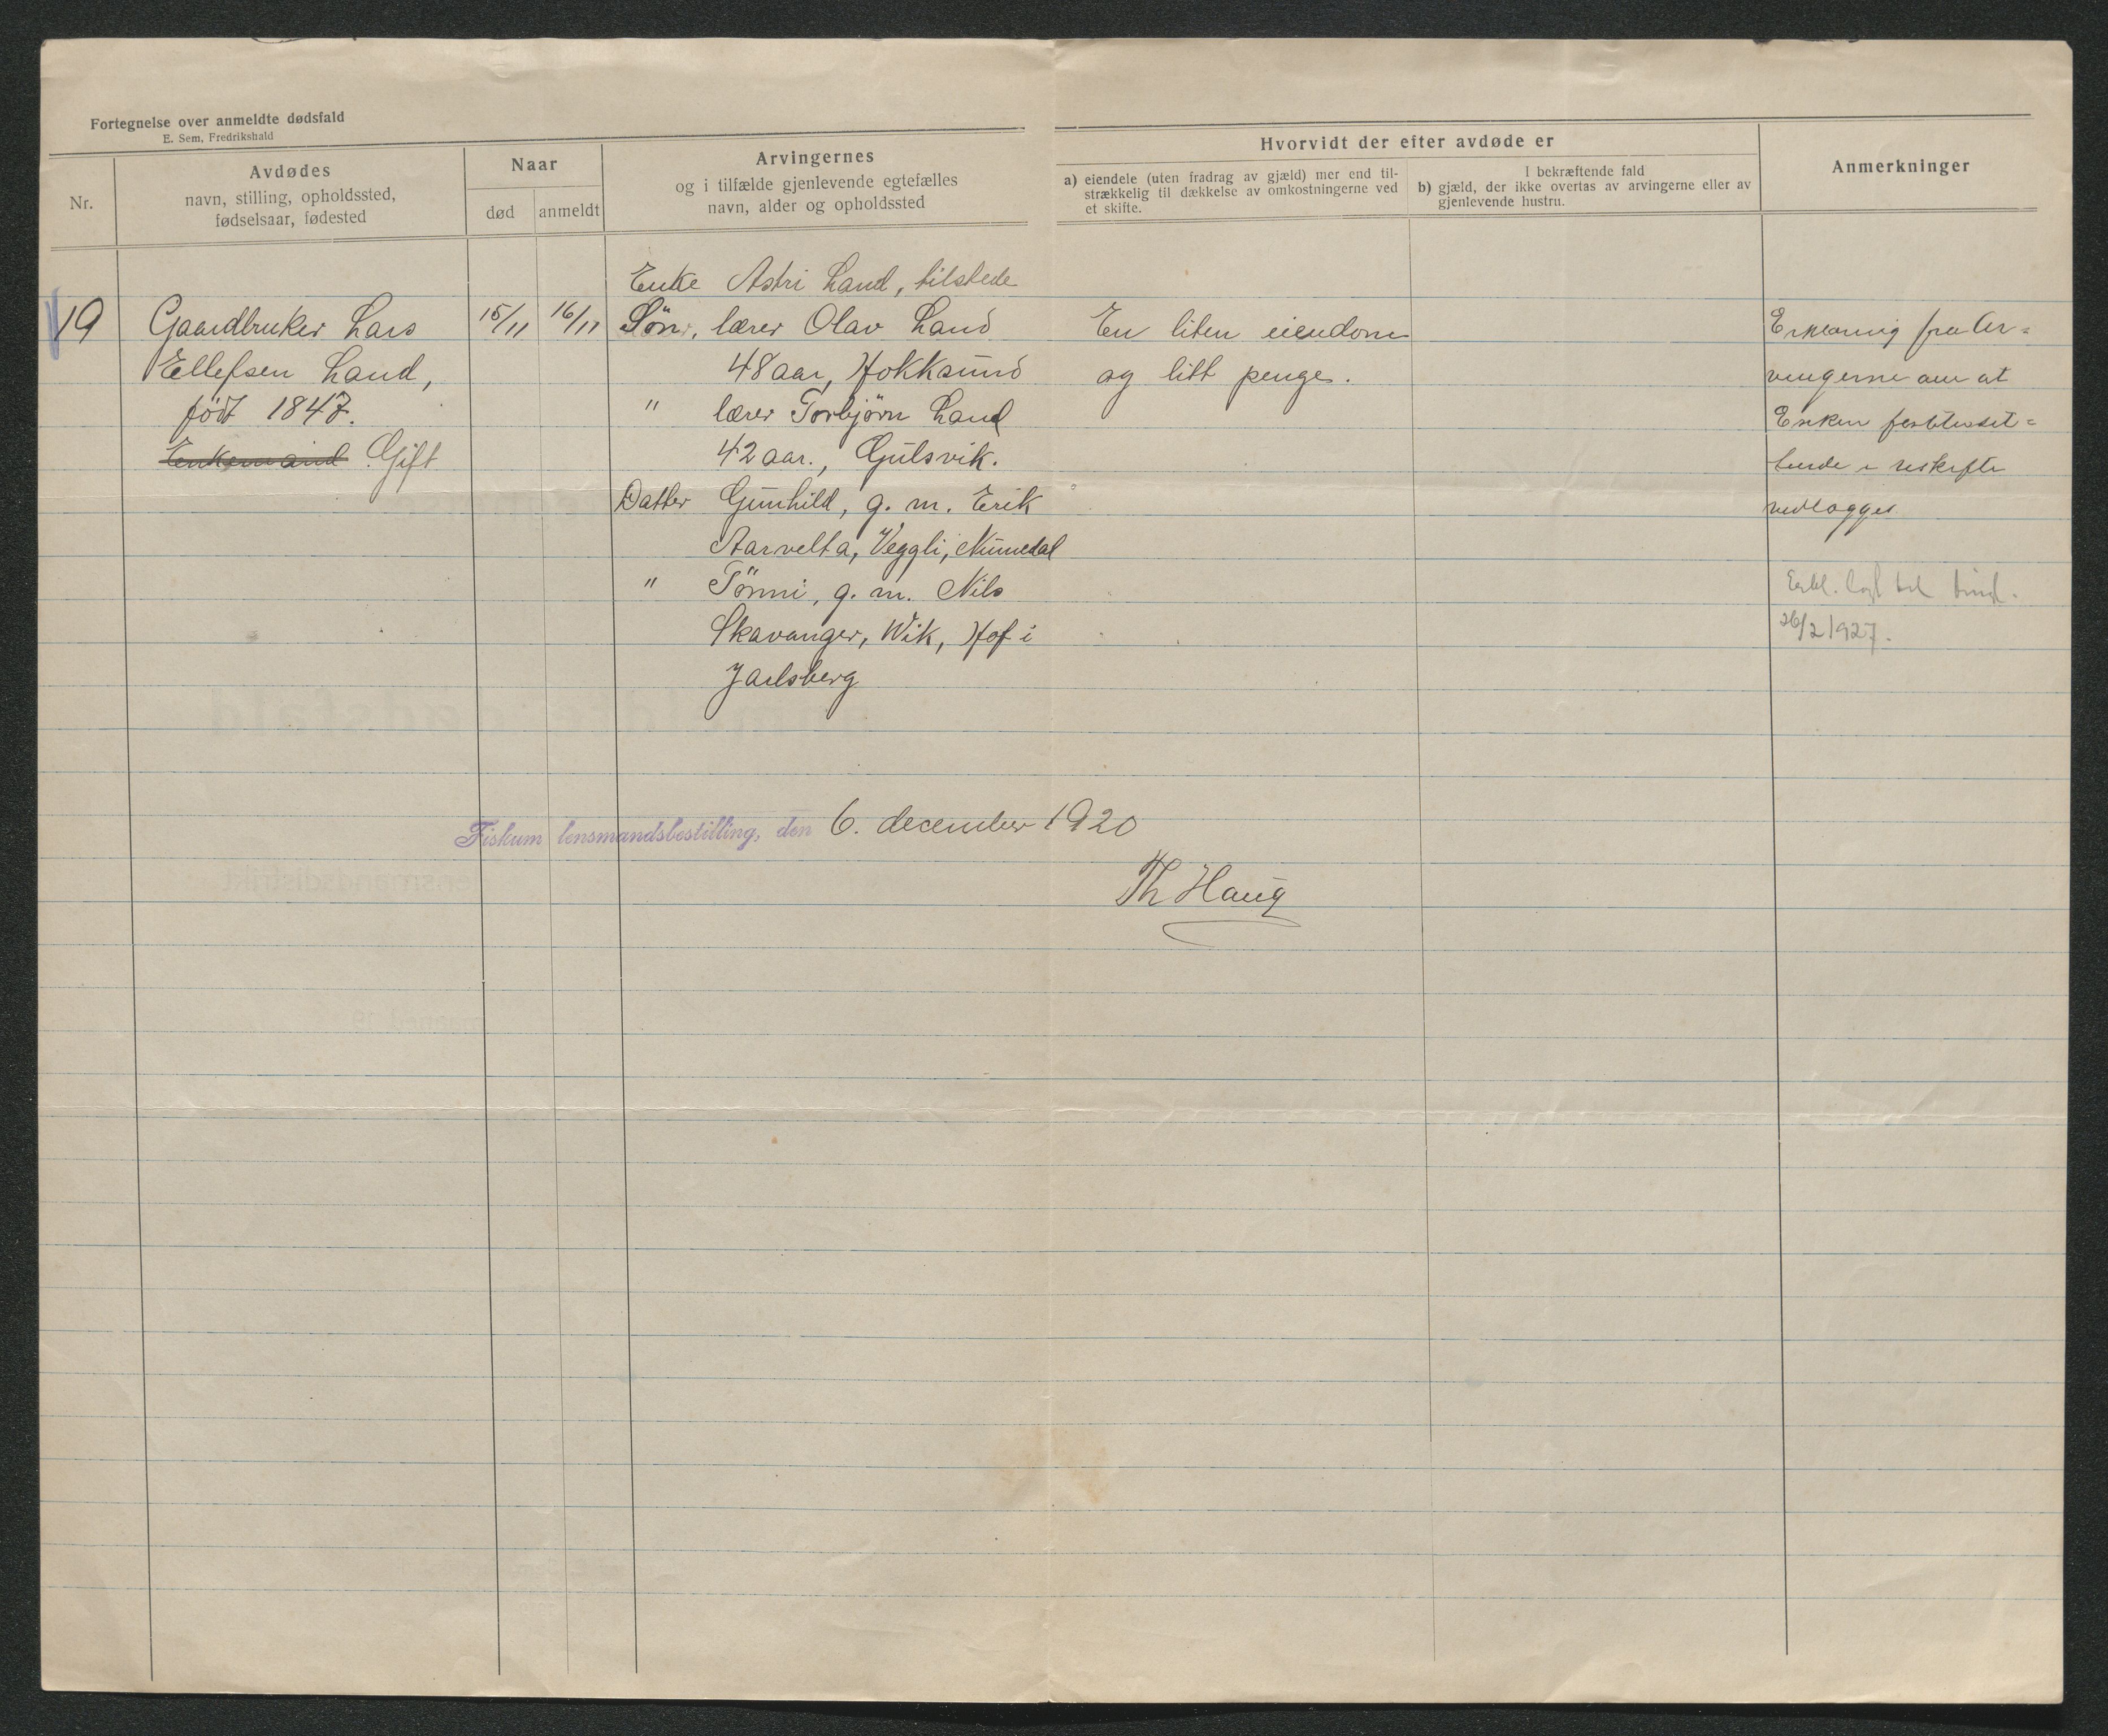 Fortegnelse over anmeldte dødsfald
E. Sem, Fredrikshald
Nr.
Avdødes
navn, stilling, opholdssted,
fødselsaar, fødested
Naar
død
anmeldt
Arvingernes
og i tilfælde gjenlevende egtefælles
navn, alder og opholdssted
Hvorvidt der efter avdøde er
a) eiendele (uten fradrag av gjæld) mer end til-
strækkelig til dækkelse av omkostningerne ved
et skifte.
I bekræftende fald
b) gjæld, der ikke overtas av arvingerne eller av
gjenlevende hustru.
Anmerkninger
19
Gaardbruker Lars
Ellefsen Land,
født 1847.
Enkemand Gift
15/11
16/11
Enke Astri Land, tilstede
Søn, lærer Olav Land
48 aar, Hokksund
" lærer Torbjörn Land
42 aar., Gulsvik.
Datter Gunhild, g. m. Erik
Aarvelta, Veggli, Numedal
" Tönni, g. m. Nils
Skavanger, Wik, Hof i
Jarlsberg
En liten eiendom
og litt penge.
Erklæring fra Ar=
vingerne om at
Enken
i uskifte
vedlægges
Erkl. lagt til
26/2 1927.
Fiskum lensmandsbestilling, den 6. december 1920
Th Haug